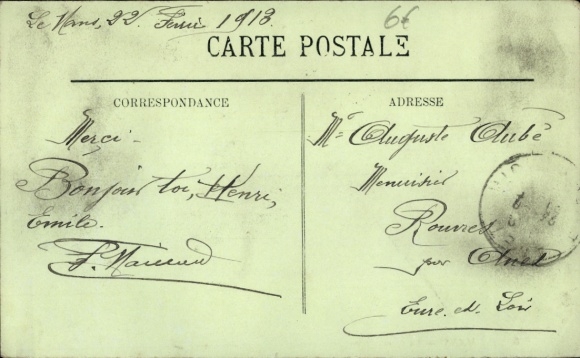 Le Mans, 22 Février 1913.
6€
CARTE POSTALE
CORRESPONDANCE
Merci.
Bonjour toi, Henri,
Emile.
ADRESSE
Mr Auguste Aubé
Menuisier
Rouvres
par Anet
Eure-et-Loir